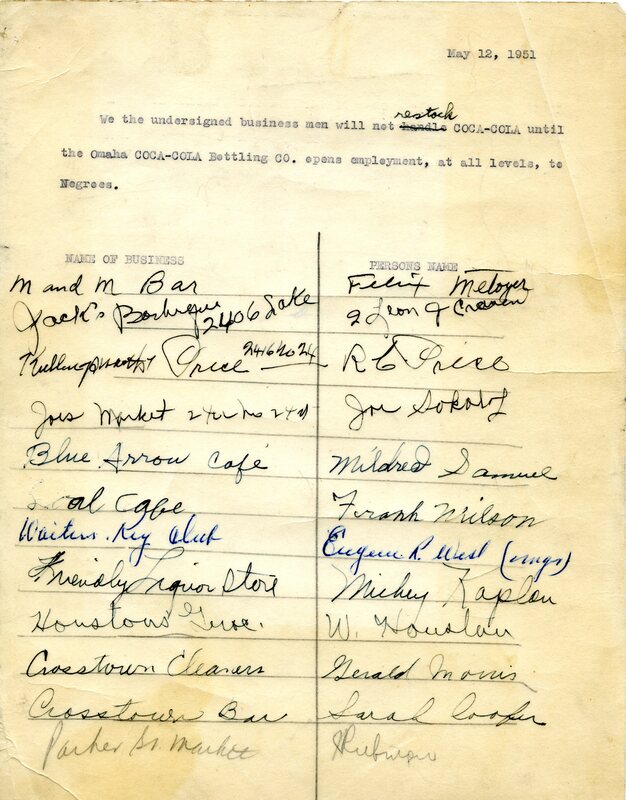 May 12, 1951
restock
We the undersigned business men will not handle COCA-COLA until
the Omaha COCA-COLA Bottling CO. opens employment, at all levels, to
Negroes.
NAME OF BUSINESS PERSONS NAME
M and M Bar Felix Metoyer
Jack's 2406 Lake
Price R C Price
Joes Market Joe
Blue Arrow Cafe Mildred Samuel
Cafe Frank Wilson
Waiters Key Club Eugene P. West (mngr)
Friendly Liquor Store Mickey Kaplan
Houstons Groc. W. Houston
Crosstown Cleaners Gerald Morris
Crosstown Bar Sarah Cooper
Parker St. Market